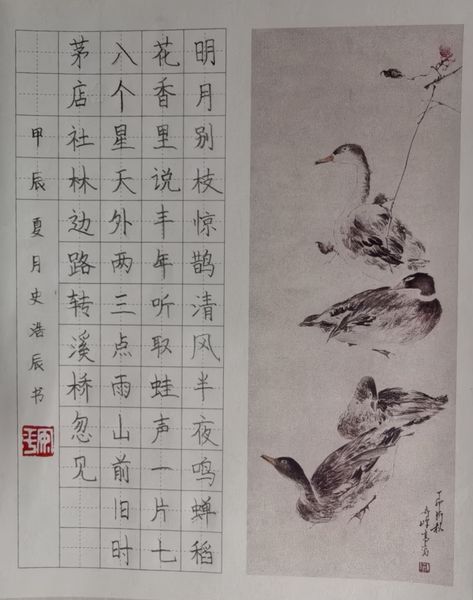 明月别枝惊鹊清风半夜鸣蝉稻
花香里说丰年听取蛙声一片七
八个星天外两三点雨山前旧时
茅店社林边路转溪桥忽见
甲辰夏月史浩辰书